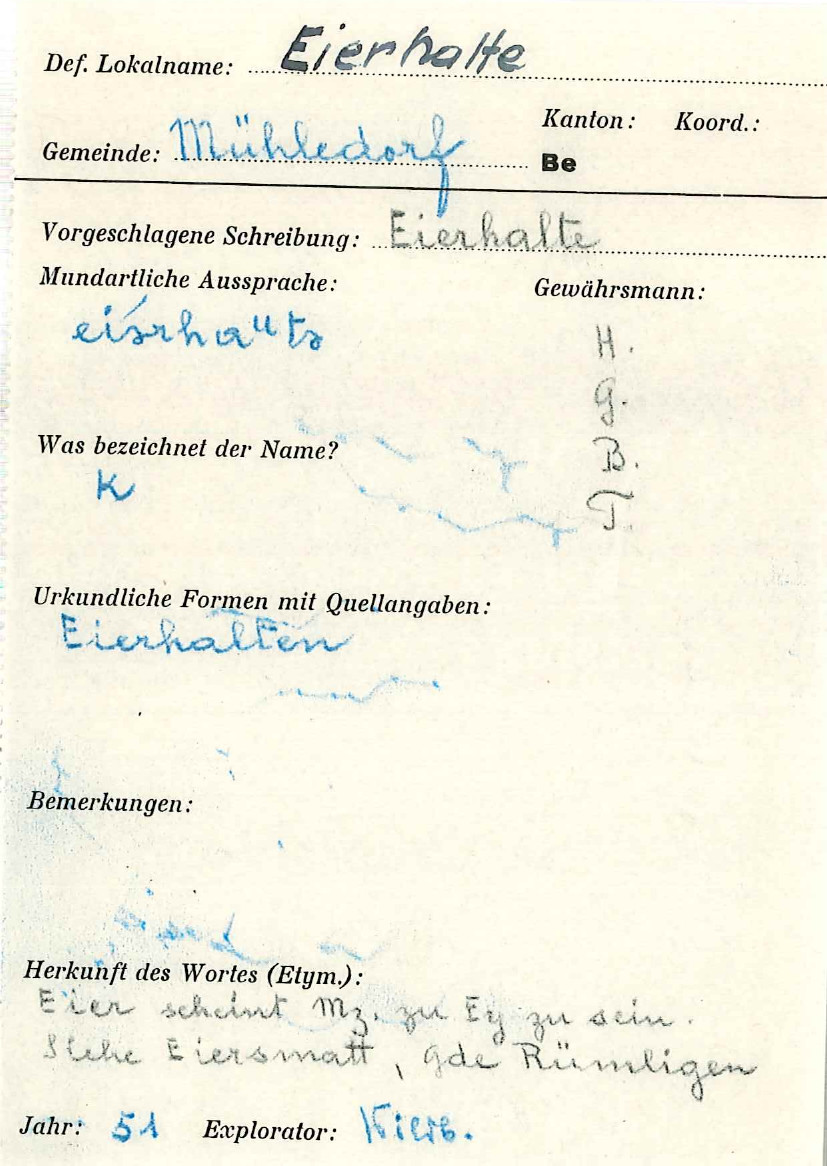 Def. Lokalname: Eierhalte
Kanton: Koord.:
Gemeinde: Mühledorf Be
Vorgeschlagene Schreibung: Eierhalte
Mundartliche Aussprache: Gewährsmann:
H.
G.
Was bezeichnet der Name? B.
K
T.
Urkundliche Formen mit Quellangaben:
Eierhalten
Bemerkungen:
Herkunft des Wortes (Etym.):
Eier scheint Mz. zu Ey zu sein.
Siehe Eiersmatt, Gde Rümligen
Jahr: 51 Explorator: